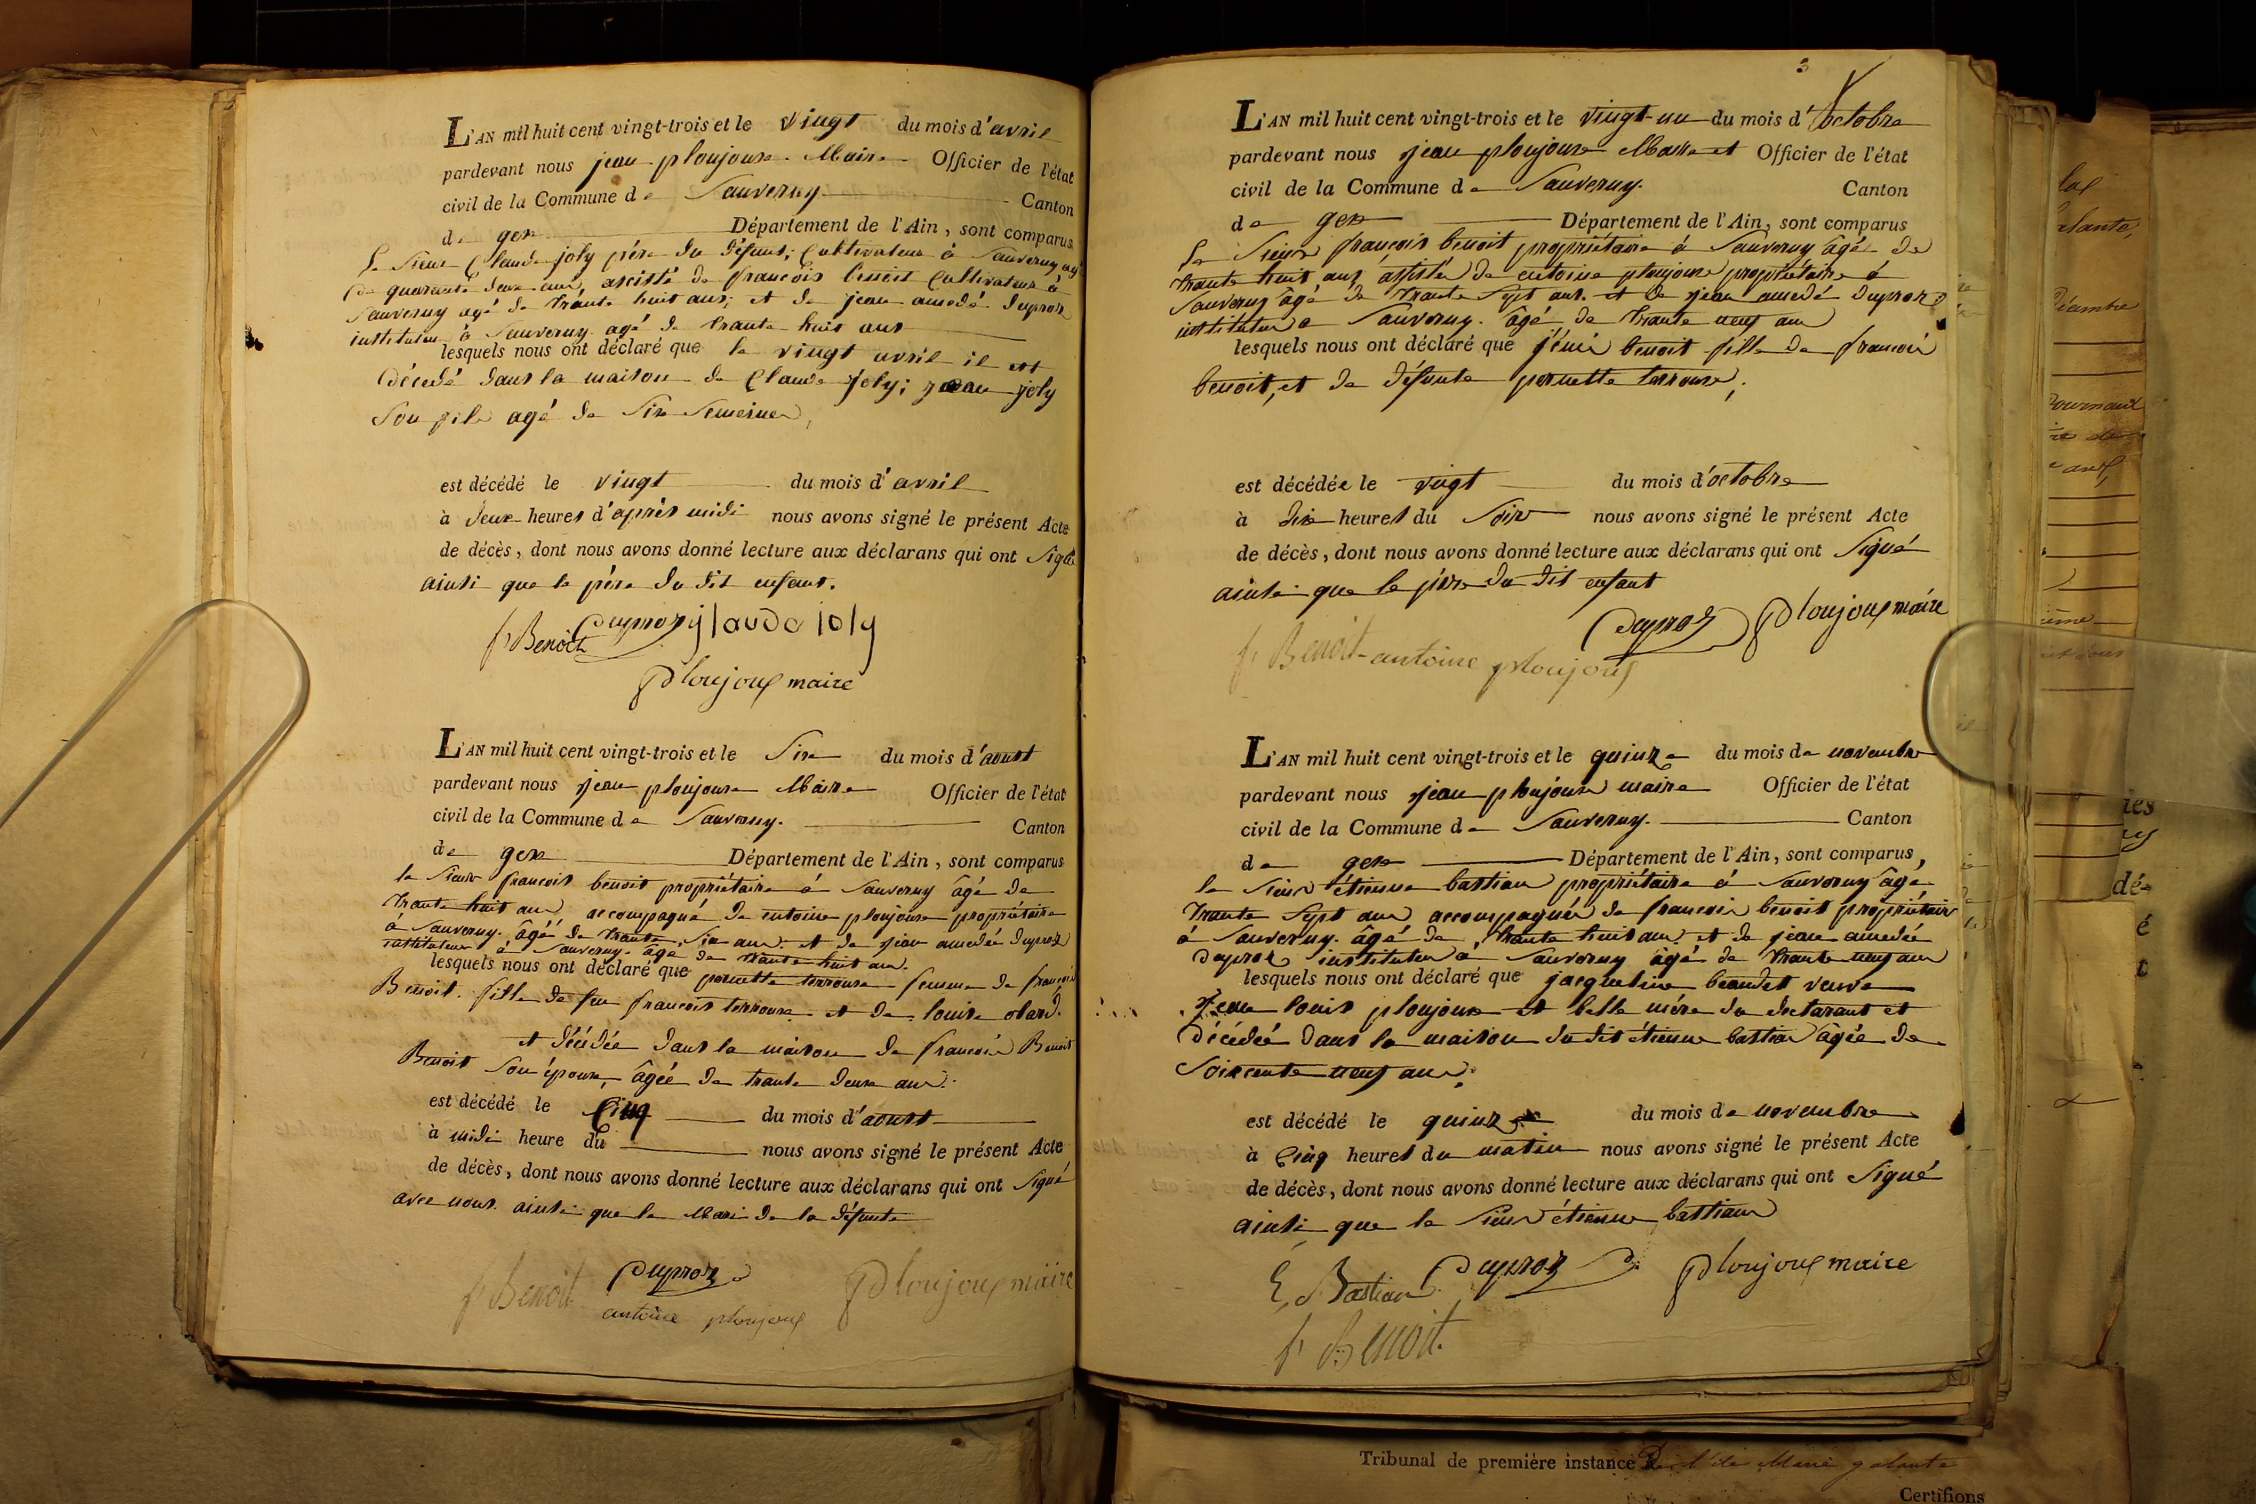 L'AN mil huit cent vingt-trois et le vingt du mois d'avril
pardevant nous jean ploujoux Maire Officier de l'état
civil de la Commune de Sauverny Canton
de gex Département de l'Ain, sont comparus
Le Sieur Claude joly père du défunt; Cultivateur à Sauverny agé
de quarante deux ans, assisté de françois benoit Cultivateur à
Sauverny agé de trante huit ans; et de jean amedé duproz
instituteur à Sauverny agé de trante huit ans
lesquels nous ont déclaré que le vingt avril il est
décédé dans la maison de Claude joly; jean joly
Son fils agé de Six Semeines,
est décédé le vingt du mois d'avril
à deux heures d'après midi nous avons signé le présent Acte
de décès, dont nous avons donné lecture aux déclarans qui ont Signé
ainsi que le père du dit enfant.
f. Benoit Duproz glaude joly
Ploujoux maire
L'AN mil huit cent vingt-trois et le Six du mois d'aoust
pardevant nous jean ploujoux Maire Officier de l'état
civil de la Commune de Sauverny. Canton
de gex Département de l'Ain, sont comparus
le Sieur francois benoit propriétaire à Sauverny âgé de
trante huit ans accompagné de entoine ploujoux propriétaire
à Sauverny. âgé de trante Six ans. et de jean amedée duproz
instituteur à Sauverny. âgé de trante huit ans.
lesquels nous ont déclaré que pernette terroux femme de françois
Benoit. fille de feu francois terroux et de louise
et décédée dans la maison de francois Benoit
Benoit Son époux, âgée de trante deux ans.
est décédé le Cinq du mois d'aoust
à midi heure du nous avons signé le présent Acte
de décès, dont nous avons donné lecture aux déclarans qui ont Signé
avec nous. ainsi que le Mari de la défunte
f. Benoit Duproz Ploujoux maire
antoine ploujoux
3
L'AN mil huit cent vingt-trois et le vingt-un du mois d'Octobre
pardevant nous jean ploujoux Maire et Officier de l'état
civil de la Commune de Sauverny. Canton
de gex Département de l'Ain, sont comparus
Le Sieur françois benoit propriétaire à Sauverny âgé de
trante huit ans, assisté de entoine ploujoux propriétaire à
Sauverny âgé de trante Sept ans. et de jean amedé duproz
instituteur a Sauverny. âgé de trante neuf ans
lesquels nous ont déclaré que benoit fille de francois
benoit, et de défunte pernette terroux,
est décédée le vingt du mois d'octobre
à dix heures du Soir nous avons signé le présent Acte
de décès, dont nous avons donné lecture aux déclarans qui ont Signé
ainsi que le père du dit enfant
Duproz Ploujoux maire
f. Benoit antoine ploujoux
L'AN mil huit cent vingt-trois et le quinze du mois de novembre
pardevant nous jean ploujoux maire Officier de l'état
civil de la Commune de Sauverny. Canton
de gex Département de l'Ain, sont comparus,
le Sieur étienne bastian propriétaire à Sauverny âgé
trante Sept ans accompagnée de francois benoit propriétaire
à Sauverny. âgé de trante huit ans. et de jean amedée
duproz instituteur a Sauverny âgé de trante neuf ans
lesquels nous ont déclaré que jacqueline beaudet veuve
jean louis ploujoux et belle mére du declarant et
décédée dans la maison du dit étienne bastian âgée de
Soixcente neuf ans;
est décédé le quinze du mois de novembre
à Cinq heures du matin nous avons signé le présent Acte
de décès, dont nous avons donné lecture aux déclarans qui ont Signé
ainsi que le Sieur étienne bastian
E. Bastian Duproz Ploujoux maire
f. Benoit.
Tribunal de première instance De l'ile Marie galante
Certifions